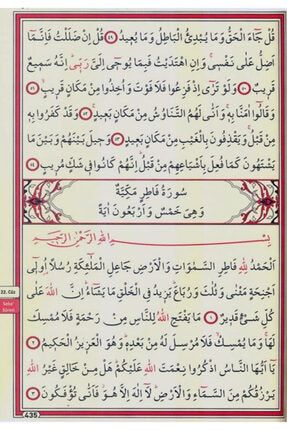 قُلْ جَٓاءَ الْحَقُّ وَمَا يُبْدِئُ الْبَاطِلُ وَمَا يُع۪يدُ ﴿٤٩﴾ قُلْ اِنْ ضَلَلْتُ فَاِنَّمَٓا
اَضِلُّ عَلٰى نَفْس۪ي وَاِنِ اهْتَدَيْتُ فَبِمَا يُوح۪ٓي اِلَيَّ رَبّ۪ي اِنَّهُ سَم۪يعٌ
قَر۪يبٌ ﴿٥٠﴾ وَلَوْ تَرٰٓى اِذْ فَزِعُوا فَلَا فَوْتَ وَاُخِذُوا مِنْ مَكَانٍ قَر۪يبٍ ﴿٥١﴾
وَقَالُٓوا اٰمَنَّا بِه۪ وَاَنّٰى لَهُمُ التَّنَاوُشُ مِنْ مَكَانٍ بَع۪يدٍ ﴿٥٢﴾ وَقَدْ كَفَرُوا بِه۪
مِنْ قَبْلُ وَيَقْذِفُونَ بِالْغَيْبِ مِنْ مَكَانٍ بَع۪يدٍ ﴿٥٣﴾ وَح۪يلَ بَيْنَهُمْ وَبَيْنَ مَا
يَشْتَهُونَ كَمَا فُعِلَ بِاَشْيَاعِهِمْ مِنْ قَبْلُ اِنَّهُمْ كَانُوا ف۪ي شَكٍّ مُر۪يبٍ ﴿٥٤﴾
سُورَةُ فَاطِرٍ مَكِّيَّةٌ
وَهِيَ خَمْسٌ وَاَرْبَعُونَ اٰيَةً
بِسْمِ اللّٰهِ الرَّحْمٰنِ الرَّح۪يمِ
اَلْحَمْدُ لِلّٰهِ فَاطِرِ السَّمٰوَاتِ وَالْاَرْضِ جَاعِلِ الْمَلٰٓئِكَةِ رُسُلًا اُو۬ل۪ٓي
اَجْنِحَةٍ مَثْنٰى وَثُلٰثَ وَرُبَاعَ يَز۪يدُ فِي الْخَلْقِ مَا يَشَٓاءُ اِنَّ اللّٰهَ عَلٰى
كُلِّ شَيْءٍ قَد۪يرٌ ﴿١﴾ مَا يَفْتَحِ اللّٰهُ لِلنَّاسِ مِنْ رَحْمَةٍ فَلَا مُمْسِكَ
لَهَا وَمَا يُمْسِكْ فَلَا مُرْسِلَ لَهُ مِنْ بَعْدِه۪ وَهُوَ الْعَز۪يزُ الْحَك۪يمُ ﴿٢﴾
يَٓا اَيُّهَا النَّاسُ اذْكُرُوا نِعْمَتَ اللّٰهِ عَلَيْكُمْ هَلْ مِنْ خَالِقٍ غَيْرُ اللّٰهِ
يَرْزُقُكُمْ مِنَ السَّمَٓاءِ وَالْاَرْضِ لَٓا اِلٰهَ اِلَّا هُوَ فَاَنّٰى تُؤْفَكُونَ ﴿٣﴾
22. Cüz
Sebe'
Sûresi
435